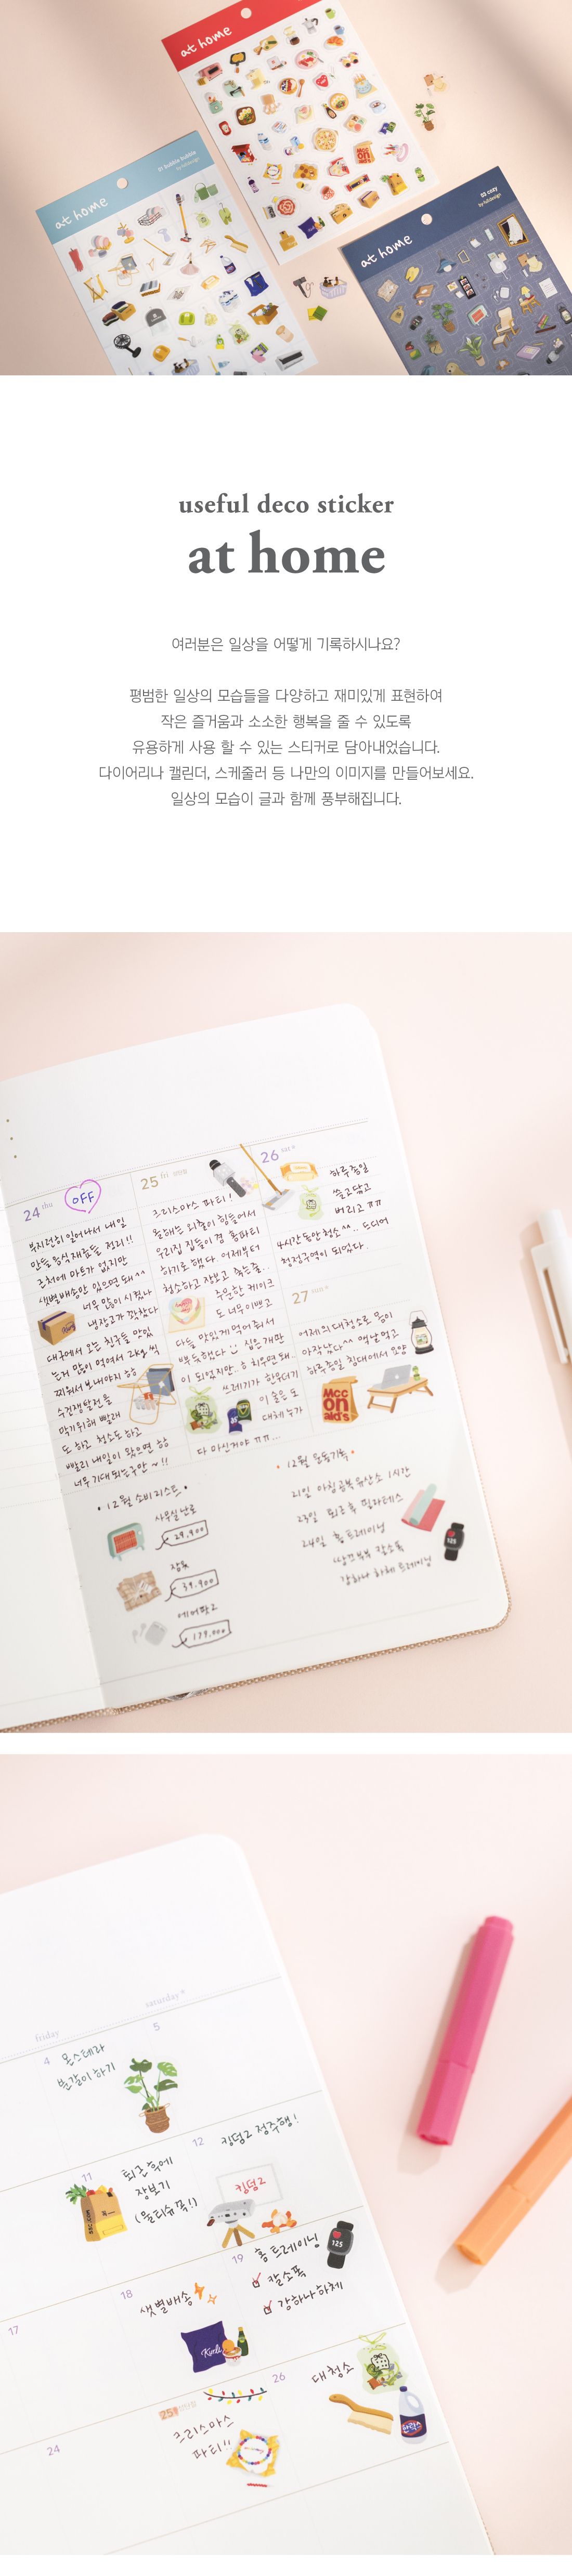 at home
at home
bubble bubble
at home
cozy
useful deco sticker
at home
여러분은 일상을 어떻게 기록하시나요?
평범한 일상의 모습들을 다양하고 재미있게 표현하여
작은 즐거움과 소소한 행복을 줄 수 있도록
유용하게 사용 할 수 있는 스티커로 담아내었습니다.
다이어리나 캘린더, 스케줄러 등 나만의 이미지를 만들어보세요.
일상의 모습이 글과 함께 풍부해집니다.
24 thu
OFF
부지런히 일어나서 내일
만들 음식 재료들 정리!!
근처에 마트가 없지만
샛별배송만 있으면 돼^^
너무 많이 시켰나
냉장고가 꽉찼다
대구에서 오는 친구들 맛있
는거 많이 먹여서 2kg씩
찌워서 보내야지
막기위해 빨래
도 하고 청소도 하고
빨리 내일이 왔으면
너무 기대되는구만~!!
25 fri
크리스마스 파티!
올해는 외출이 힘들어서
우리집 집들이 겸 홈파티
하기로 했다. 어제부터
청소하고 장보고 죽는줄..
주문한 케이크
도 너무 이쁘고
다들 맛있게 먹어줘서
뿌듯했다 집은 개판
이 되었지만..
쓰레기가 한무더기
이 술은 또
대체 누가
다 마신거야 ㅠㅠ...
26 sat
하루종일
쓸고닦고
버리고 ㅠㅠ
4시간동안청소^^.. 드디어
청정구역이 되었다.
27 sun
어제의 대청소로 몸이
아작났다^^ 맥날먹고
하루종일 침대에서 요양
Mcc
on
ald's
12월 소비리스트
사무실 난로
29,900
잠옷
39,900
에어팟2
179,000
12월 운동기록
21일 아침공복유산소 1시간
23일 퇴근후 필라테스
24일 홈트레이닝
땅끄부부 칼소폭
강하나 하체 트레이닝
125
friday
saturday
4
몬스테라
분갈이 하기
5
11
퇴근후에
장보기
(물티슈 꼭!)
12
킹덤2 정주행!
킹덤2
17
18
샛별배송
Kurly
19
홈트레이닝
칼소폭
강하나하체
125
24
25
크리스마스
파티!!
26
대청소